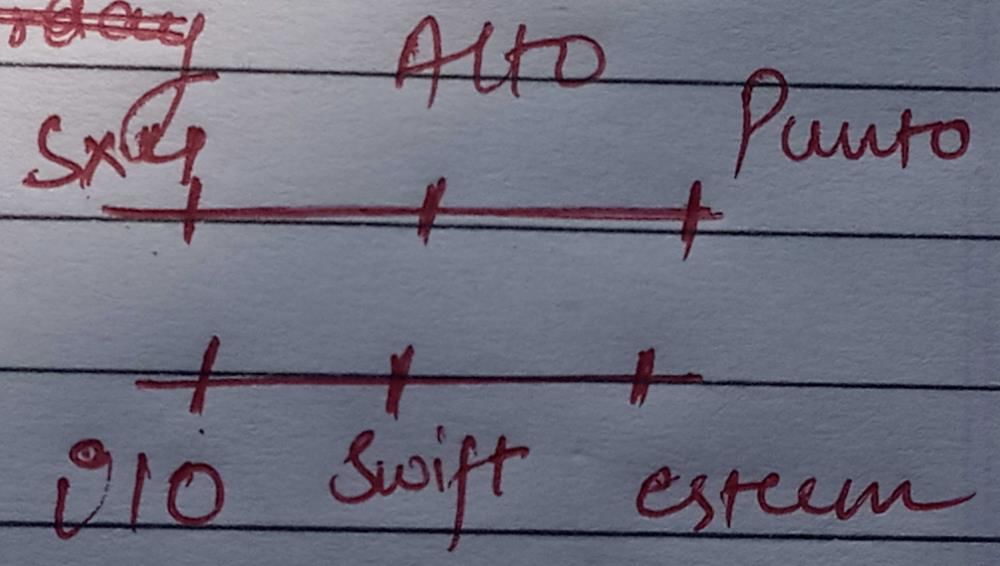 Sx4 Alto Punto
i10 Swift esteem